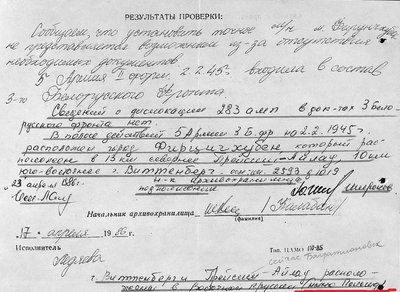 РЕЗУЛЬТАТЫ ПРОВЕРКИ:
Сообщаем, что установить точное м/н м. Фиргинхубен
не представляется возможным из-за отсутствия
необходимых документов.
5 Армия II форм. 2.2.45г. входила в состав
3-го Белорусского Фронта
Сведений о дислокации 283 амп в док-тах 3 Бело-
русского фронта нет.
В полосе действий 5 Армии 3 Б.фр на 2.2.1945г.
расположен город Фиргигхубен, который рас-
положен в 13 км севернее Прейсиш-Айлау, 10 км
юго-восточнее г. Виттенберг. оп. 2593 д. 1019
23 апреля 1986г.
н-к архивохранилища
подполковник
Начальник архивохранилища
(фамилия)
17 апреля 1986 г.
Исполнитель
Тип. ЦАМО
сейчас Багратионовск
г. Виттенберг и Прейсиш-Айлау располо-
жены в Восточной Пруссии